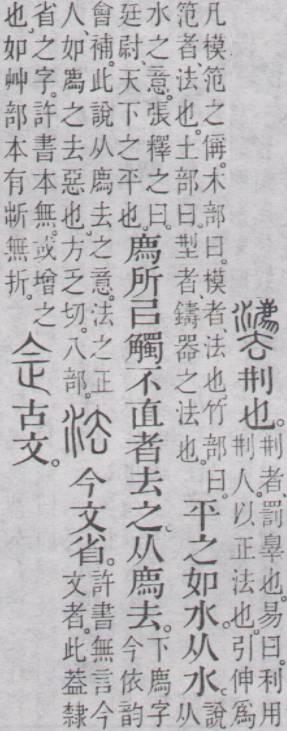 灋㓝也。㓝者、罰辠也。易曰。利用
㓝人、以正法也。引伸爲
凡模笵之偁。木部曰。模者法也。竹部曰。
笵者、法也。土部曰。型者、鑄器之法也。
平之如水。从水。說
从
水之意。張釋之曰。
廷尉、天下之平也。
廌所㠯觸不直者去之。从廌去。下廌字
今依韵
會補。此說从廌去之意。法之正
人、如廌之去惡也。方乏切。八部。
法今文省。許書無言今
文者。此葢隸
省之字。許書本無。或增之
也。如艸部本有斳無折。
佱古文。